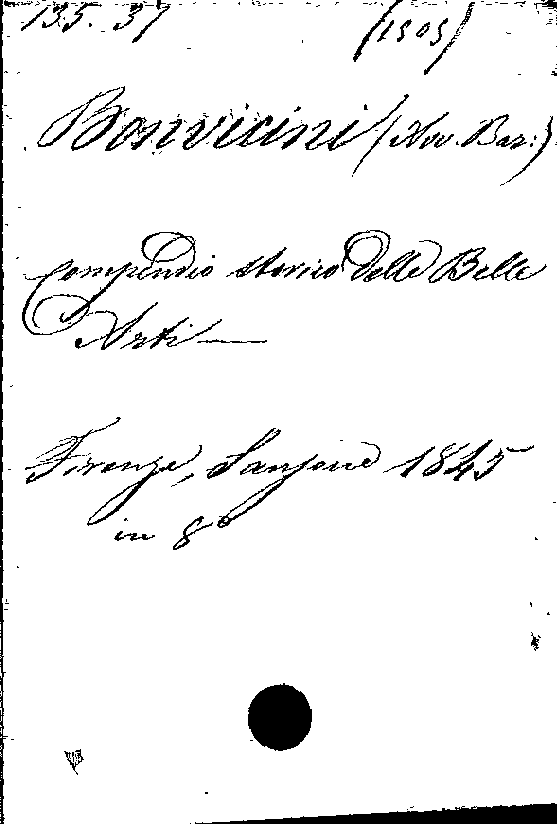 135. 37 (1505)
Bonvicini (Avv. Bar:)
Compendio storico delle Belle
Arti —
Firenze, Sansone 1845
in 8°